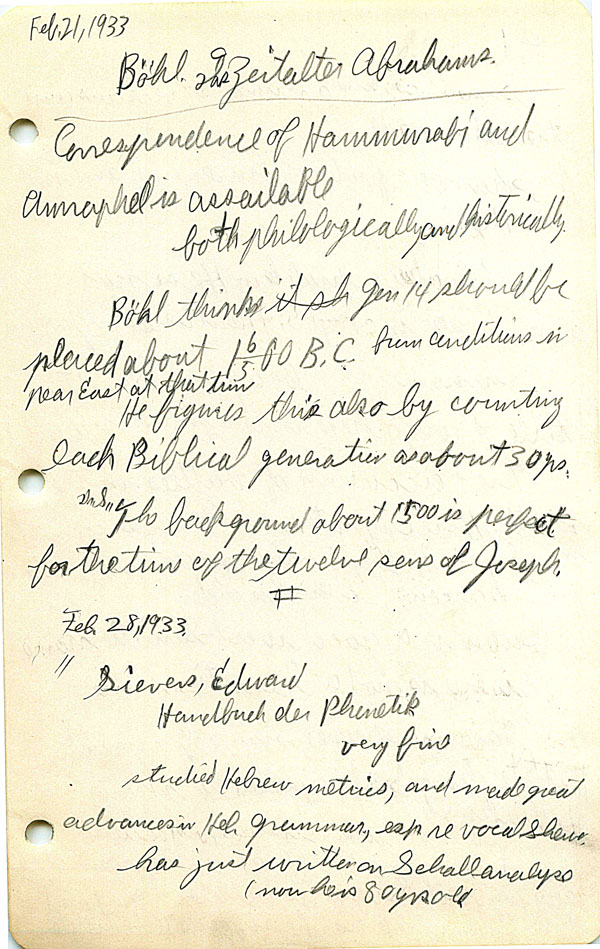 Feb. 21, 1933
Böhl. Das Zeitalter Abrahams.
Correspondence of Hammurabi and
Amraphel is assailable
both philologically and historically.
Böhl thinks it sh Gen 14 should be
placed about 1600 B.C. from conditions in
near East at that time
He figures this also by counting
each Biblical generation as about 30 yrs.
The background about 1500 is perfect
for the time of the twelve sons of Joseph.
Feb. 28, 1933.
"
Sievers, Edward
Handbuch der Phonetik
very fine
studied Hebrew metrics, and made great
advances in Heb. grammar, esp re vocal Shewa.
has just written on Schallanalyse
(now he is 80 yrs old